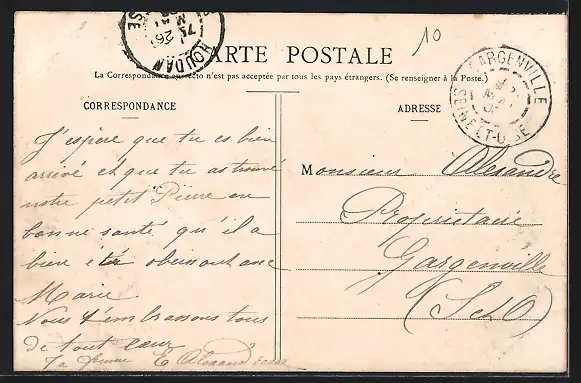 CARTE POSTALE
10
La Correspondance au recto n'est pas acceptée par tous les pays étrangers. (Se renseigner à la Poste.)
HOUDAN
GARGENVILLE
SEINE-ET-OISE
CORRESPONDANCE
J'espère que tu es bien
arrivé et que tu as trouvé
notre petit Pierre en
bonne santé qu'il a
bien été obeissant avec
Marie
Nous t'embrassons tous
de tout cœur
Ta femme E Alexandre
ADRESSE
Monsieur Alexandre
Propriétaire
Gargenville
(S et O)